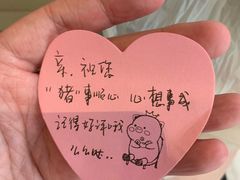 亲，祝您
"猪"事顺心 心想事成
记得好评哦
么么哒..